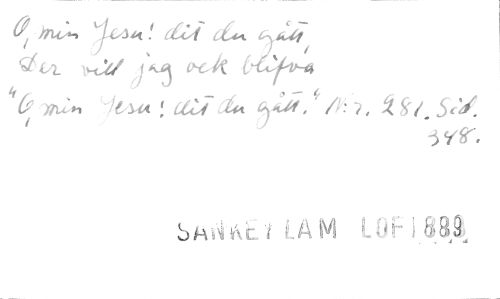 O, min Jesu! dit du gått,
Der vill jag ock blifva
"O, min Jesu! dit du gått." Nr. 281. Sid.
348.
SANKEY LAM LOF 1889